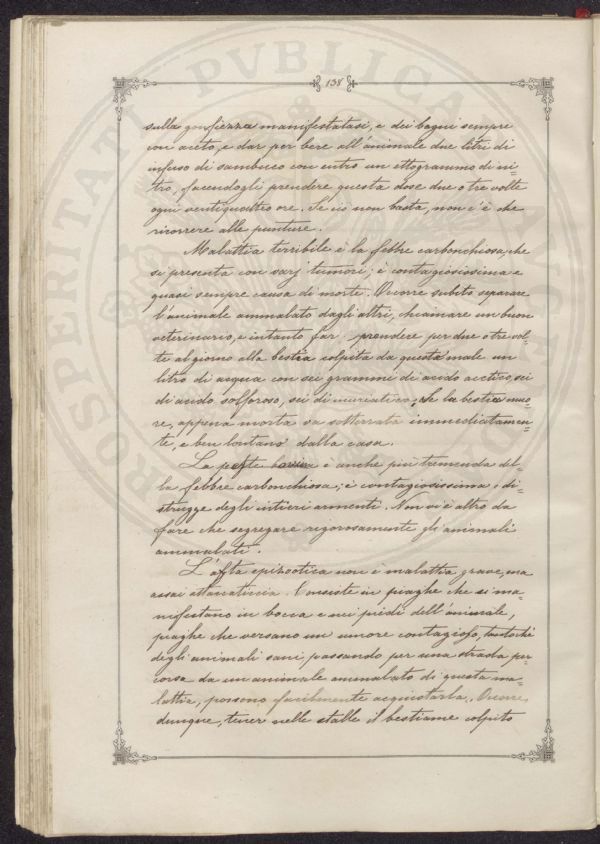 138
sulla gonfiezza manifestatasi, e dei bagni sempre
con aceto, e dar per bere all'animale due litri di
infuso di sambuco con entro un ettogrammo di ni=
tro, facendogli prendere questa dose due o tre volte
ogni ventiquattro ore. Se ciò non basta, non c'è che
ricorrere alle punture.
Malattia terribile è la febbre carbonchiosa, che
si presenta con varj tumori; è contagiosissima e
quasi sempre causa di morte. Occorre subito separare
l'animale ammalato dagli altri, chiamare un buon
veterinario, e intanto far prendere per due o tre vol=
te al giorno alla bestia colpita da questo male un
litro di acqua con sei grammi di acido acetico, sei
di acido solforoso, sei di muriatico; se la bestia muo=
re, appena morta va sotterrata immediatamen=
te, e ben lontano dalla casa.
La peste bovina è anche più tremenda del=
la febbre carbonchiosa; è contagiosissima e di=
strugge degli intieri armenti. Non vi è altro da
fare che segregare rigorosamente gli animali
ammalati.
L'afta epizootica non è malattia grave, ma
assai attaccaticcia. Consiste in piaghe che si ma=
nifestano in bocca e nei piedi dell'animale,
piaghe che versano un umore contagioso, tantochè
degli animali sani passando per una strada per=
corsa da un animale ammalato di questa ma=
lattia, possono facilmente acquistarla. Occorre,
dunque, tener nelle stalle il bestiame colpito
PROSPERITATI PVBLICAE